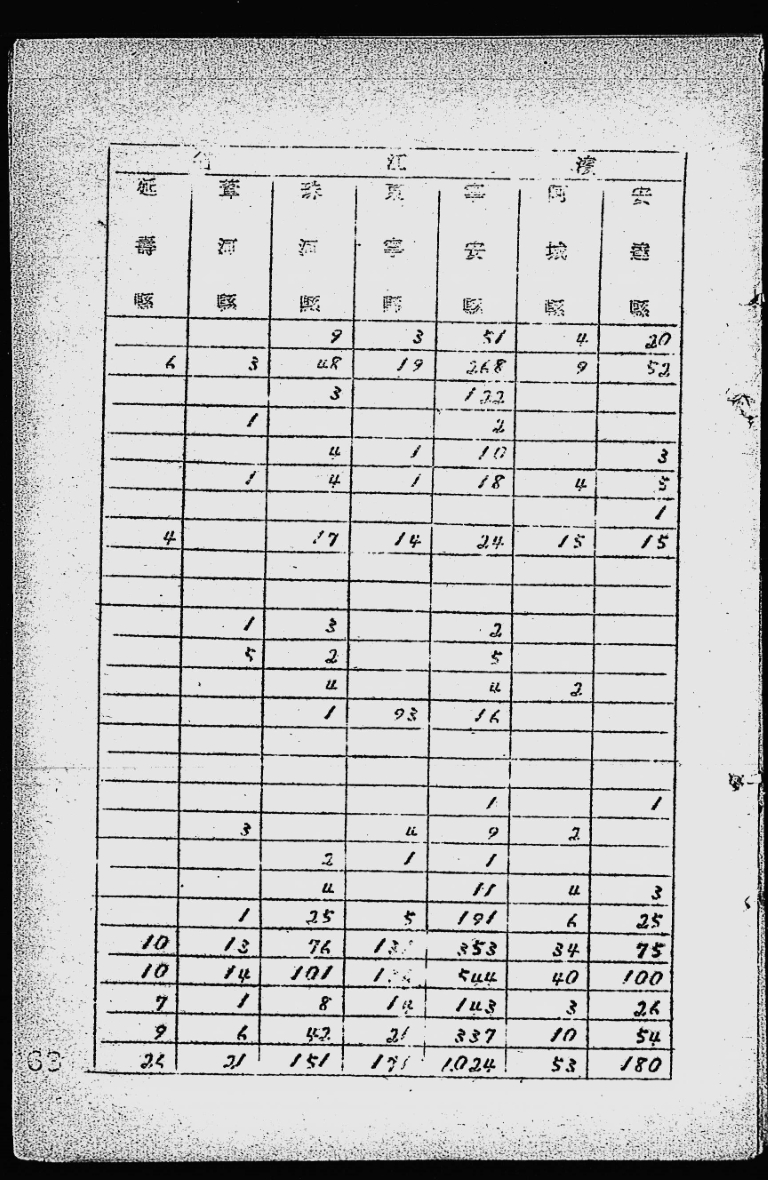 江 濱
延壽縣 葦河縣 珠河縣 東寧縣 寧安縣 阿城縣 安達縣
9 3 51 4 20
6 3 48 19 268 9 52
3 122
1 2
4 1 10 3
1 4 1 18 4 5
1
4 17 14 24 15 15
1 3 2
5 2 5
4 4 2
1 93 16
1 1
3 4 9 2
2 1 1
4 11 4 3
1 25 5 191 6 25
10 13 76 353 34 75
10 14 101 544 40 100
7 1 8 14 143 3 26
9 6 42 21 337 10 54
26 21 151 1.024 53 180
63